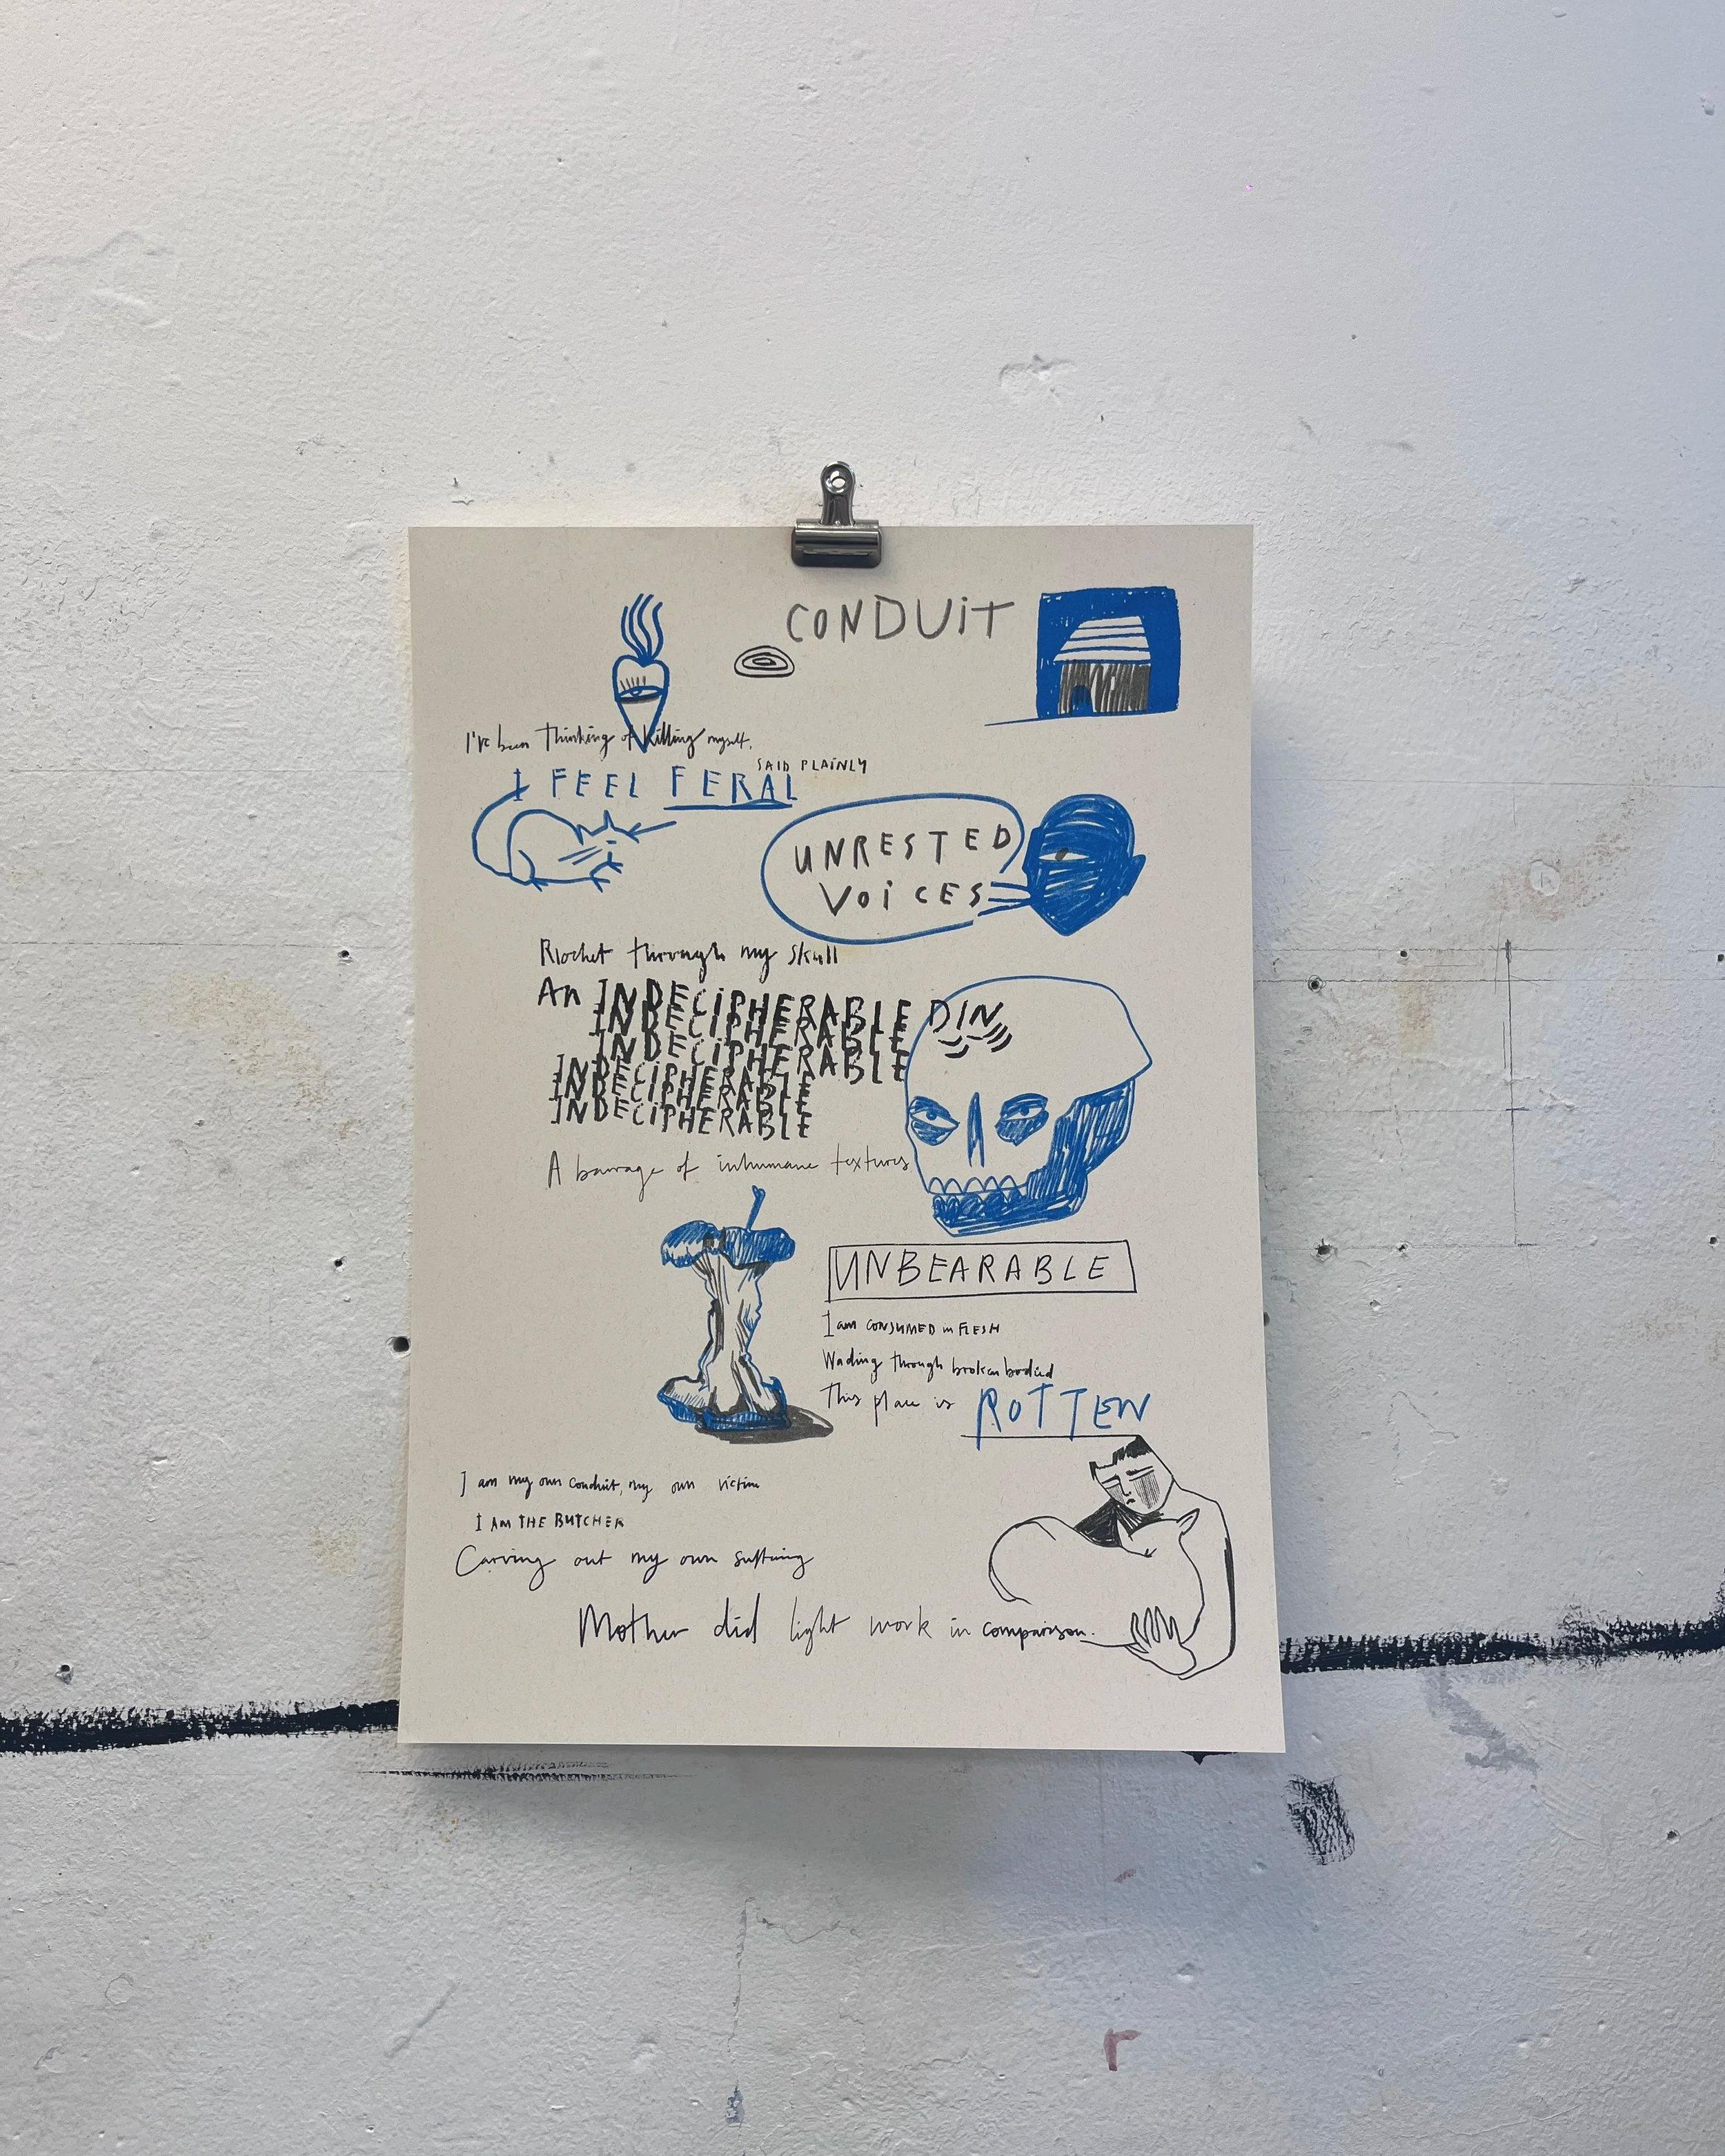 CONDUIT
I've been thinking of killing myself.
SAID PLAINLY
I FEEL FERAL
UNRESTED
VOICES
Ricochet through my skull
An INDECIPHERABLE DIN
INDECIPHERABLE
INDECIPHERABLE
INDECIPHERABLE
INDECIPHERABLE
INDECIPHERABLE
A barrage of inhumane textures
UNBEARABLE
I am CONSUMED in FLESH
Wading through broken bodied
This place is ROTTEN
I am my own conduit, my own victim
I AM THE BUTCHER
Carving out my own suffering
Mother did light work in comparison.